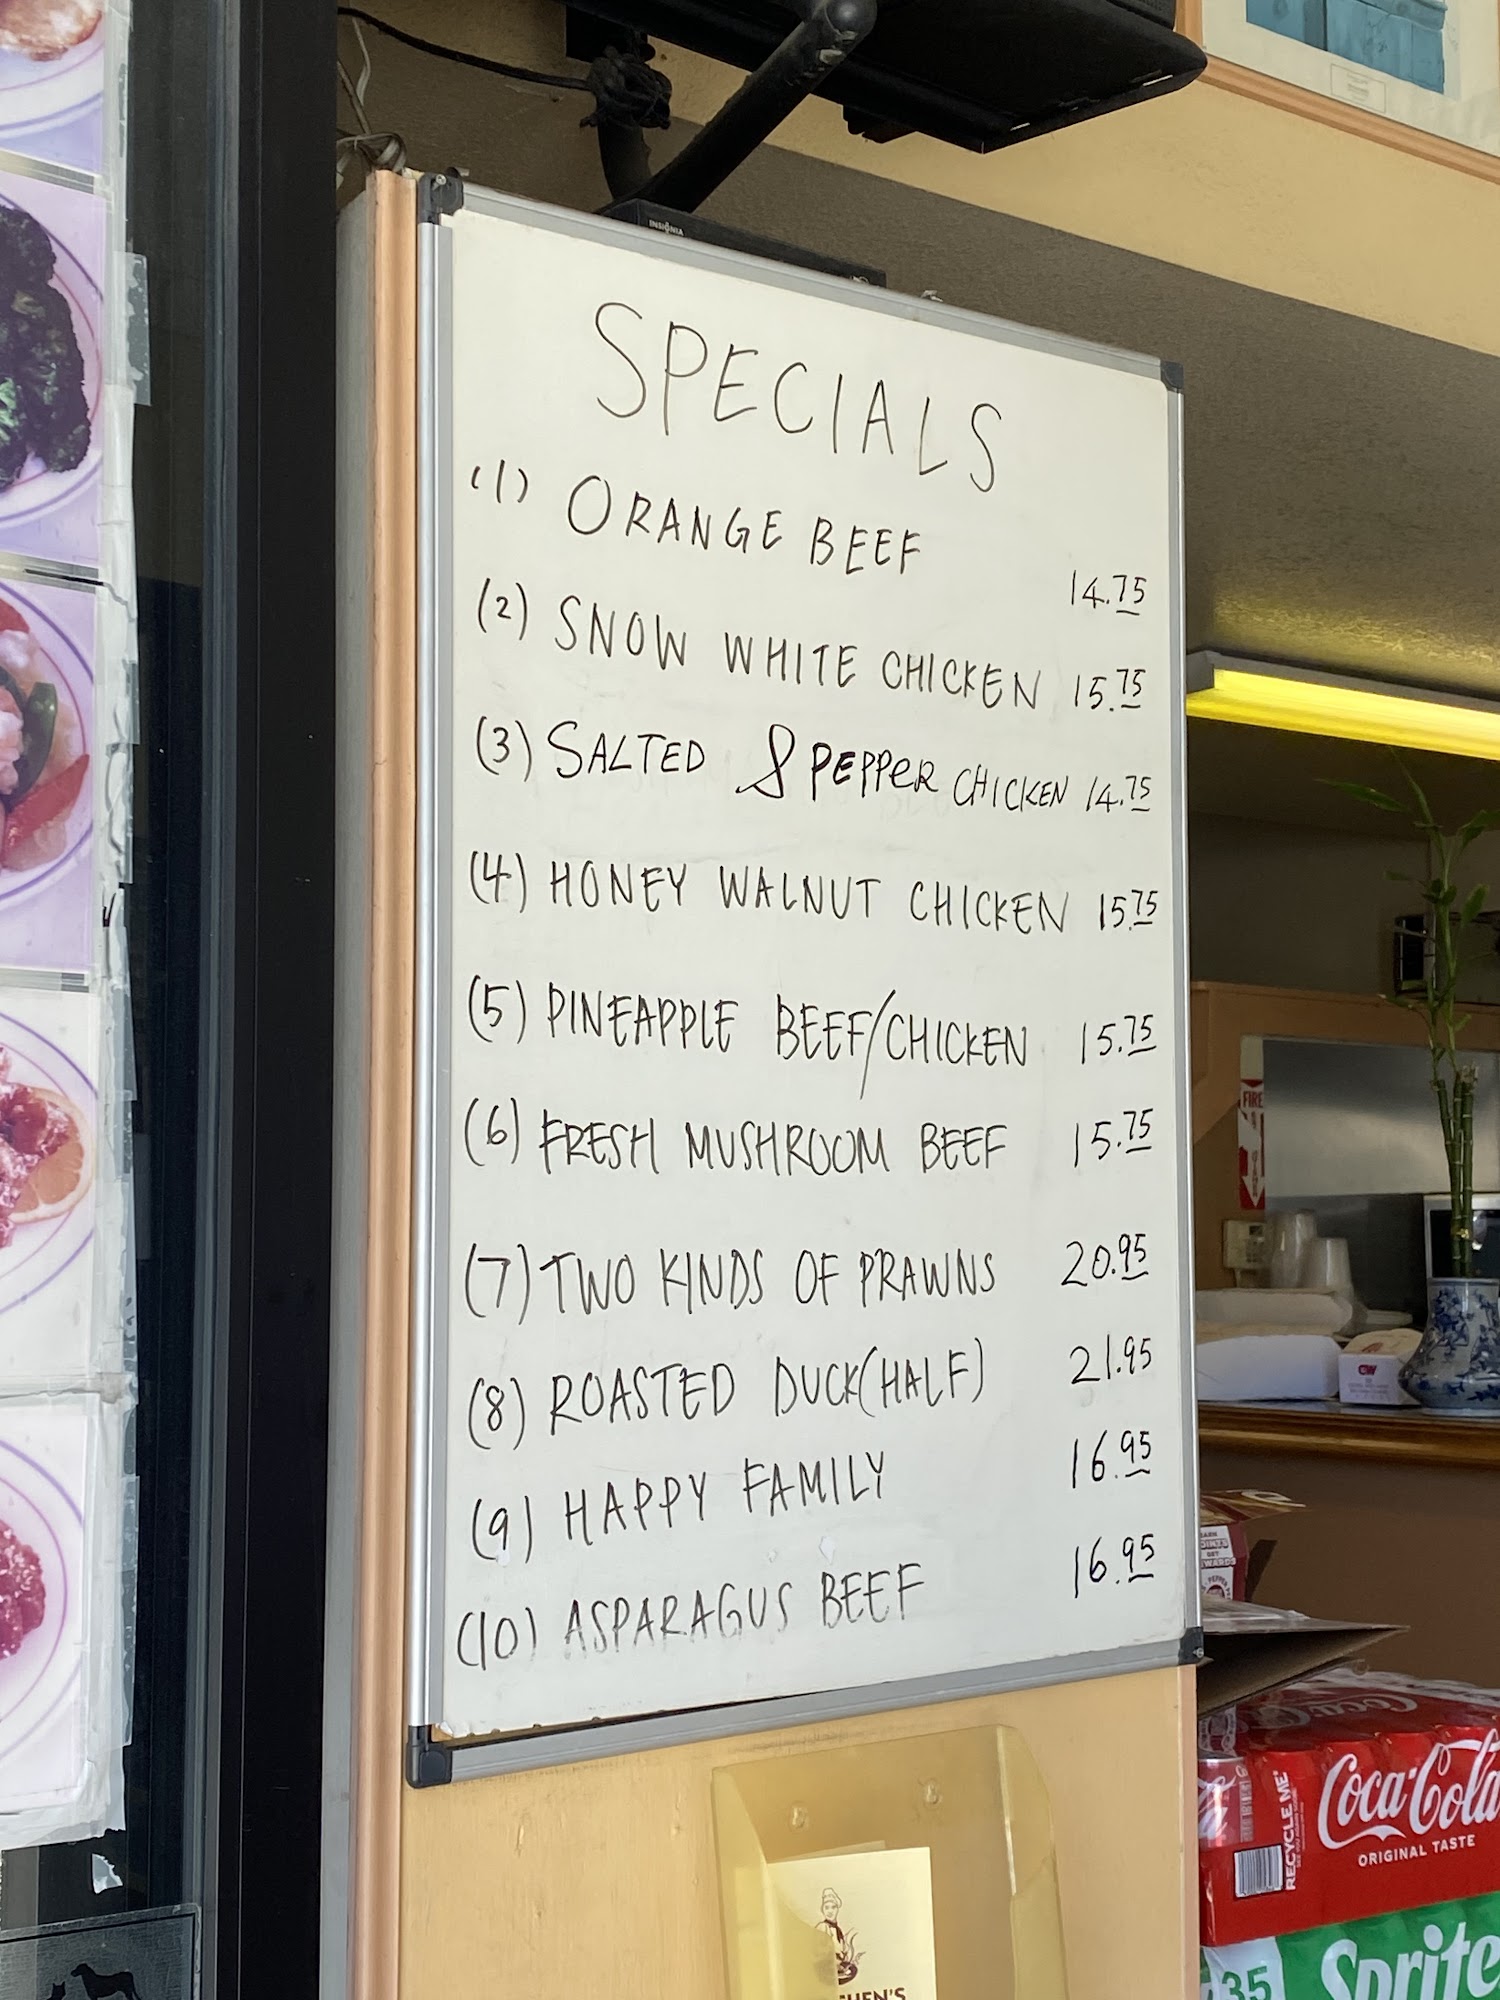 INSIGNIA
SPECIALS
(1) ORANGE BEEF 14.75
(2) SNOW WHITE CHICKEN 15.75
(3) SALTED & PEPPER CHICKEN 14.75
(4) HONEY WALNUT CHICKEN 15.75
(5) PINEAPPLE BEEF/CHICKEN 15.75
(6) FRESH MUSHROOM BEEF 15.75
(7) TWO KINDS OF PRAWNS 20.95
(8) ROASTED DUCK (HALF) 21.95
(9) HAPPY FAMILY 16.95
(10) ASPARAGUS BEEF 16.95
FIRE
RECYCLE ME
Coca-Cola
ORIGINAL TASTE
35
Sprite